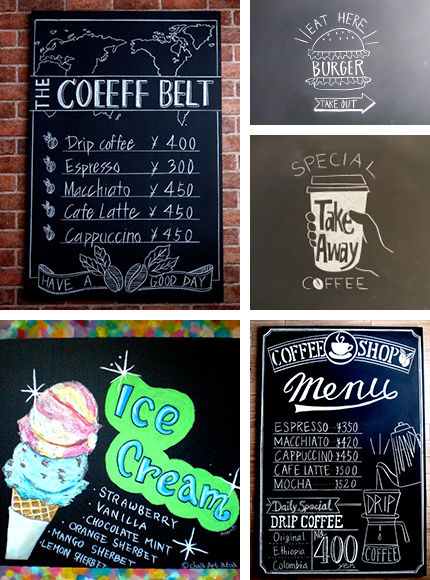 THE COEEFF BELT
Drip coffee ¥ 400
Espresso ¥ 300
Macchiato ¥ 450
Cafe Latte ¥ 450
Cappuccino ¥ 450
HAVE A GOOD DAY
EAT HERE
BURGER
TAKE OUT
SPECIAL
Take
Away
COFFEE
Ice
Cream
STRAWBERRY
VANILLA
CHOCOLATE MINT
ORANGE SHERBET
MANGO SHERBET
LEMON SHERBET
COFFEE SHOP
Menu
ESPRESSO ¥350
MACCHIATO ¥420
CAPPUCCINO ¥450
CAFE LATTE ¥500
MOCHA ¥520
Daily Special
DRIP COFFEE
Original
Ethiopia
Colombia
400
yen
DRIP
COFFEE